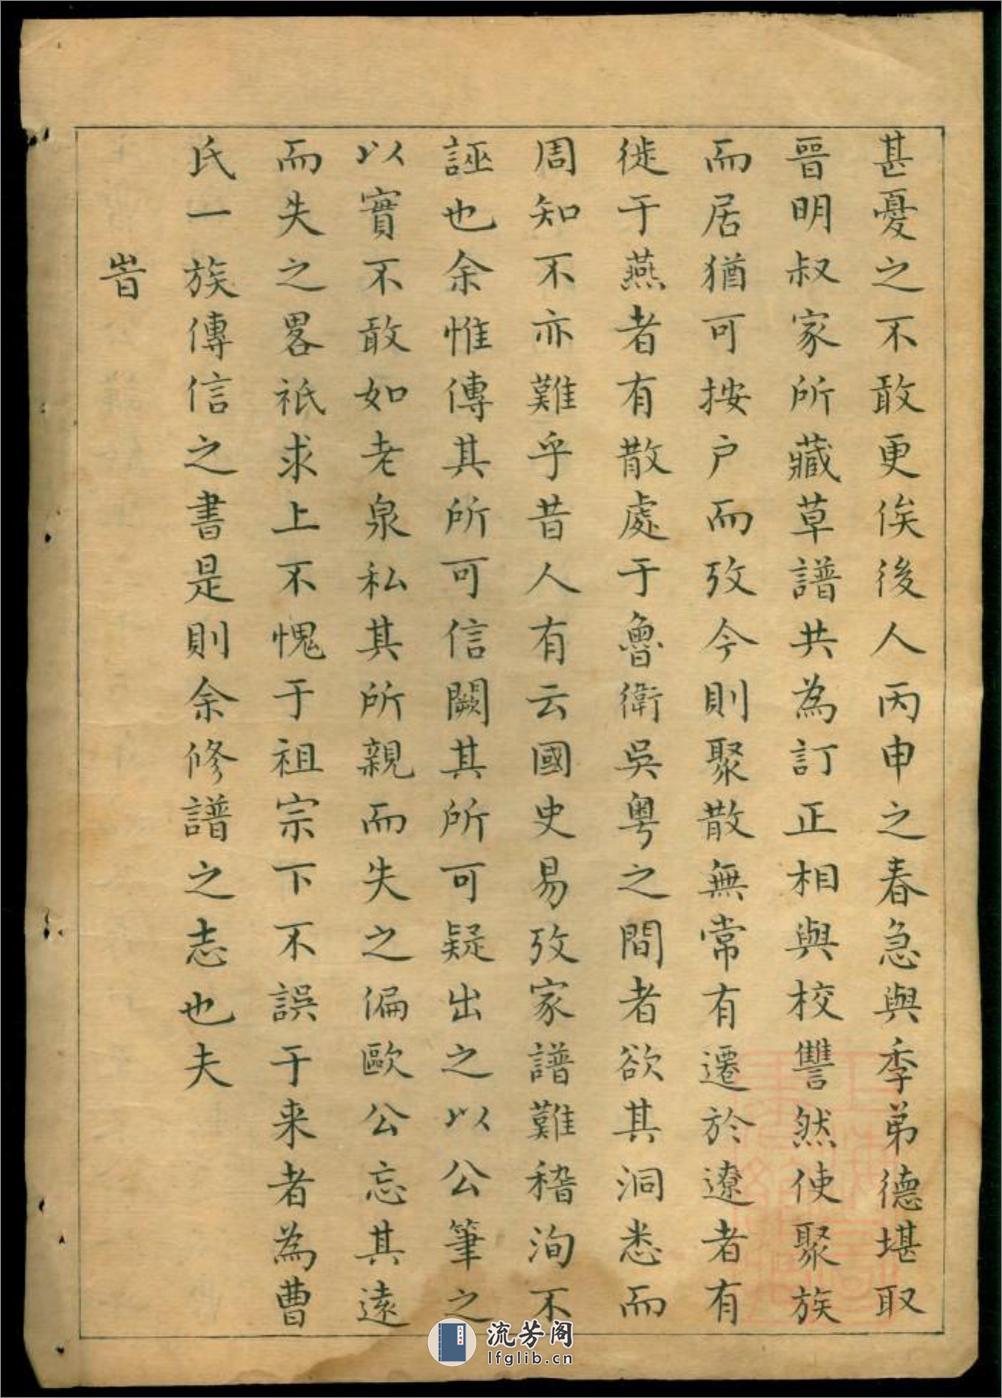 甚憂之不敢更俟後人丙申之春急與季弟德堪取
晉明叔家所藏草譜共為訂正相與校讐然使聚族
而居猶可按户而攷今則聚散無常有遷於遼者有
徙于燕者有散處于魯衛吳粤之間者欲其洞悉而
周知不亦難乎昔人有云國史易攷家譜難稽洵不
誣也余惟傳其所可信闕其所可疑出之以公筆之
以實不敢如老泉私其所親而失之偏歐公忘其遠
而失之畧祇求上不愧于祖宗下不誤于来者為曹
氏一族傳信之書是則余修譜之志也夫
旹
流芳阁
lfglib.cn